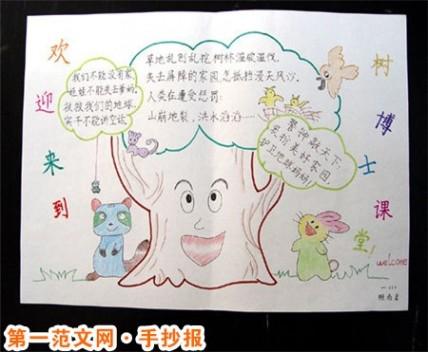 欢
迎
来
到
树
博
士
课
堂!
草地乱割乱挖,树林滥砍滥伐,
失去屏障的家园,怎抵挡漫天风沙。
人类在遭受惩罚:
山崩地裂、洪水滔滔……
我们不能没有家,
娃娃不能失去爹妈,
救救我们的地球,
实干不能讲空话。
警钟敲天下:
爱护美好家园,
护卫地球妈妈!
welcome
第一范文网·手抄报